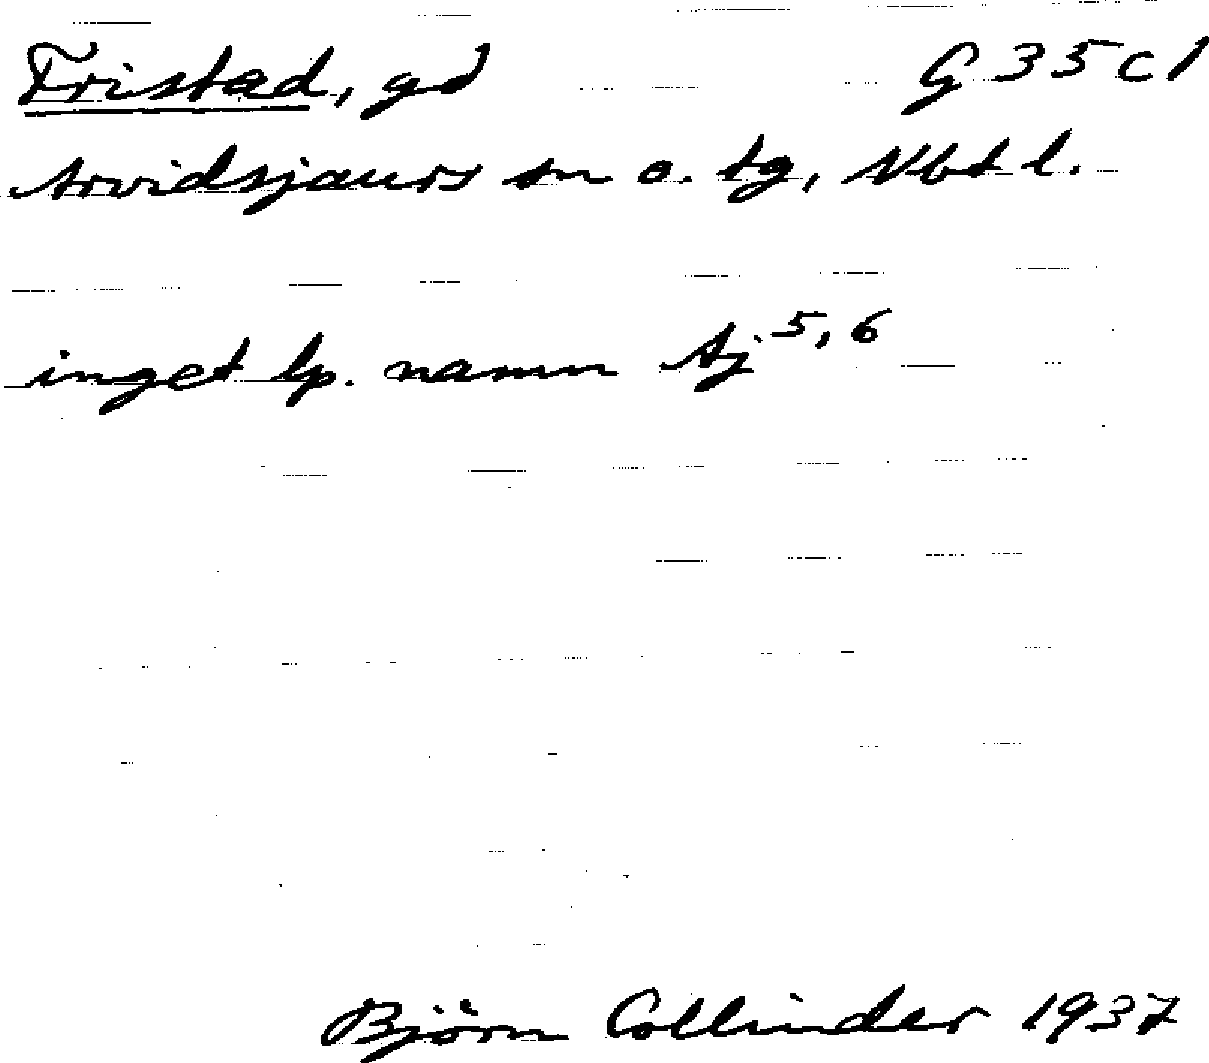 Fristad, gd G 35 c 1
Arvidsjaurs sn o. tg, Nbt l.
inget lp. namn Aj 5, 6
Björn Collinder 1937